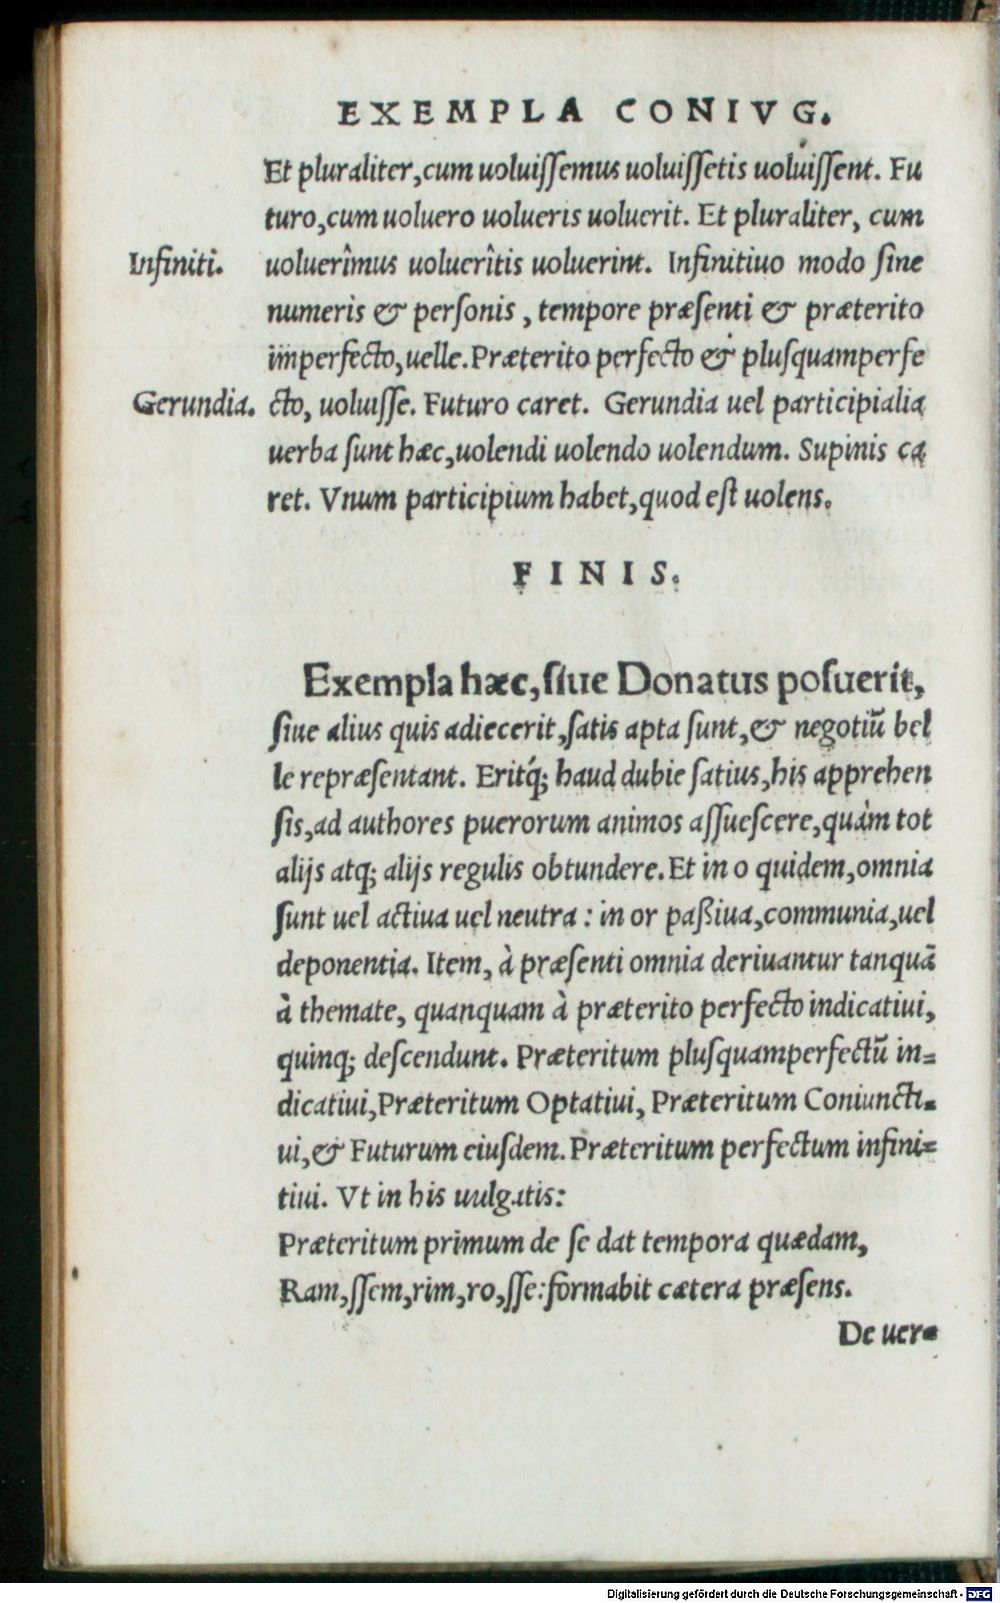 EXEMPLA CONIVG.
Et pluraliter,cum uoluiſſemus uoluiſſetis uoluiſſent. Fu
turo,cum uoluero uolueris uoluerit. Et pluraliter, cum
Infiniti. uoluerîmus uoluerîtis uoluerint. Infinitiuo modo ſine
numeris & perſonis, tempore præſenti & præterito
imperfecto,uelle. Præterito perfecto & pluſquamperfe
Gerundia. cto, uoluiſſe. Futuro caret. Gerundia uel participialia
uerba ſunt hæc,uolendi uolendo uolendum. Supinis ca
ret. Vnum participium habet,quod eſt uolens.
FINIS.
Exempla hæc,ſiue Donatus poſuerit,
ſiue alius quis adiecerit,ſatis apta ſunt,& negotiũ bel
le repræſentant. Eritq́; haud dubie ſatius,his apprehen
ſis,ad authores puerorum animos aſſueſcere,quàm tot
alijs atq; alijs regulis obtundere. Et in o quidem,omnia
ſunt uel actiua uel neutra : in or paßiua,communia,uel
deponentia. Item, à præſenti omnia deriuantur tanquã
à themate, quanquam à præterito perfecto indicatiui,
quinq; deſcendunt. Præteritum pluſquamperfectũ in=
dicatiui,Præteritum Optatiui, Præteritum Coniuncti=
ui,& Futurum eiuſdem. Præteritum perfectum infini=
tiui. Vt in his uulgatis:
Præteritum primum de ſe dat tempora quædam,
Ram,ſſem,rim,ro,ſſe:formabit cætera præſens.
De uer=
Digitalisierung gefördert durch die Deutsche Forschungsgemeinschaft - DFG